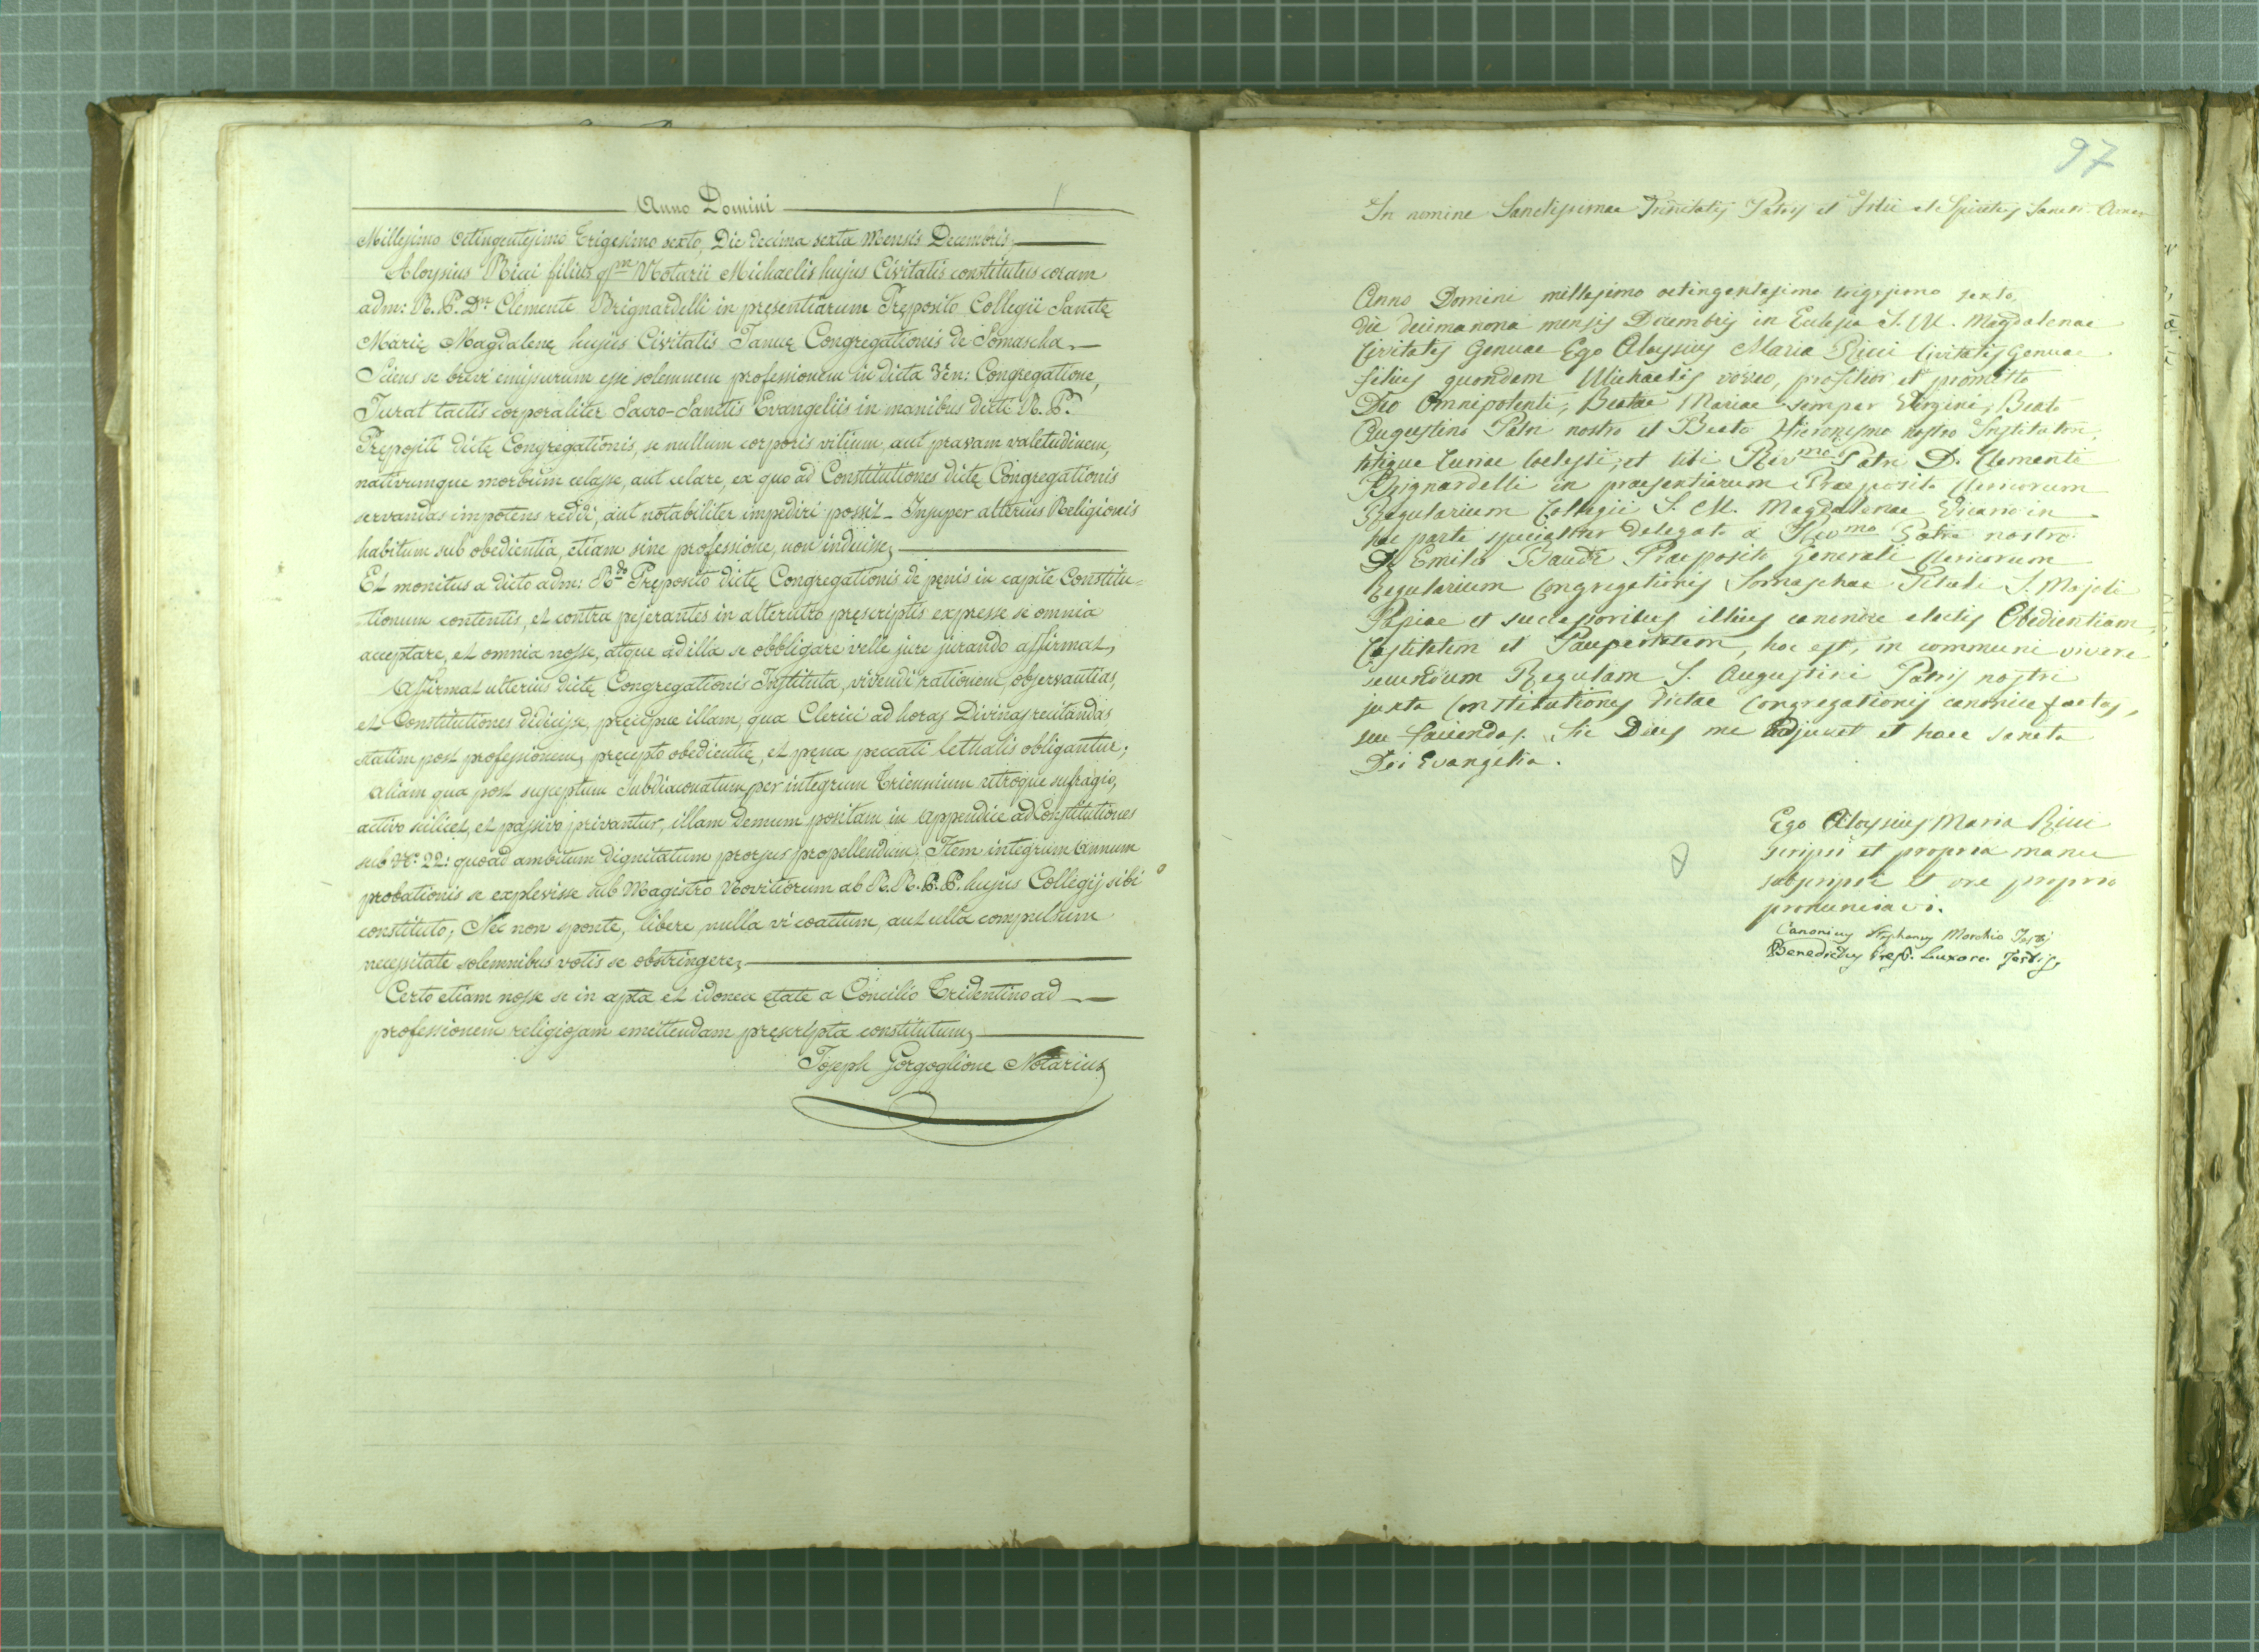 Anno Domini
Millesimo octingentesimo trigesimo sexto, Die decima sexta Mensis Decembris,
Aloysius Ricci filius qm Notarii Michaelis hujus Civitatis constitutus coram
adm: R. P. Dn Clemente Brignardelli in pręsentiarum Pręposito Collegii Sanctę
Marię Magdalenę hujus Civitatis Januę Congregationis de Somascha,
Sciens se brevi emissurum esse solemnem professionem in dicta Ven: Congregatione,
Jurat tactis corporaliter Sacro-Sanctis Evangeliis in manibus dicti R. P.
Prępositi dictę Congregationis, se nullum corporis vitium, aut pravam valetudinem,
nativumque morbum celasse, aut celare, ex quo ad Constitutiones dictę Congregationis
servandas impotens reddi, aut notabiliter impediri possit_ Insuper alterius Religionis
habitum sub obedientia, etiam sine professione, non induisse,
Et monitus a dicto adm: Rdo Pręposito dictę Congregationis de pęnis in capite Constitu=
tionum contentis, et contra pejerantes in alterutro pręscriptis expresse se omnia
acceptare, et omnia nosse, atque ad illa se obbligare velle jure jurando affirmat,
Affirmat ulterius dictę Congregationis Instituta, vivendi rationem, observantias,
et Constitutiones didicisse, pręcipue illam, qua Clerici ad horas Divinas recitandas
statim post professionem, pręcepto obedientię, et pęna peccati lethalis obligantur;
aliam qua post susceptum Subdiaconatum per integrum triennium utroque sufragio,
activo scilicet, et passivo privantur, illam demum positam in Appendice ad Constitutiones
sub No: 22: quoad ambitum dignitatum prorsus propellendum; Item integrum Annum
probationis se explevisse sub Magistro Novitiorum ab R. R. P. P. hujus Collegij sibi
constituto; Nec non sponte, libere, nulla vi coactum, aut ulla compulsum
necessitate solemnibus votis se obstringere,
Certo etiam nosse se in apta et idonea ętate a Concilio Tridentino ad
professionem religiosam emittendam pręscripta constitutum,
Joseph Gorgoglione Notarius
97
In nomine Sanctissimae Trinitatis Patris et Filii et Spiritus Sancti Amen
Anno Domini millesimo octingentesimo trigesimo sexto,
die decimanona mensis Decembris in Eclesia S. M. Magdalenae
Civitatis Genuae Ego Aloysius Maria Ricci Civitatis Genuae
filius quondam Michaelis voveo, profiteor et promitto
Deo Omnipotenti, Beatae Mariae semper Virgini, Beato
Augustino Patri nostro et Beato Hieronymo nostro Institutori,
totique Curiae Coelesti; et tibi Revmo Patri D. Clementi
Brignardelli in praesentiarum Praeposito Clericorum
Regularium Collegii S. M. Magdalenae Vicario in
hac parte specialiter delegato a Revmo Patre nostro
D. Emilio Baudi Praeposito Generali Clericorum
Regularium Congregationis Somaschae Tituli S. Majoli
Papiae et successoribus illius canonice electis Obedientiam,
Castitatem et Paupertatem, hoc est, in communi vivere
secundum Regulam S. Augustini Patris nostri
juxta Constitutiones dictae Congregationis canonice factas,
seu faciendas. Sic Deus me adjuvet et haec sancta
Dei Evangelia.
Ego Aloysius Maria Ricci
scripsi et propria manu
subscripsi et ore proprio
pronunciavi.
Canonicus Stephanus Marchio Testis
Benedictus Presb. Luxoro Testis,